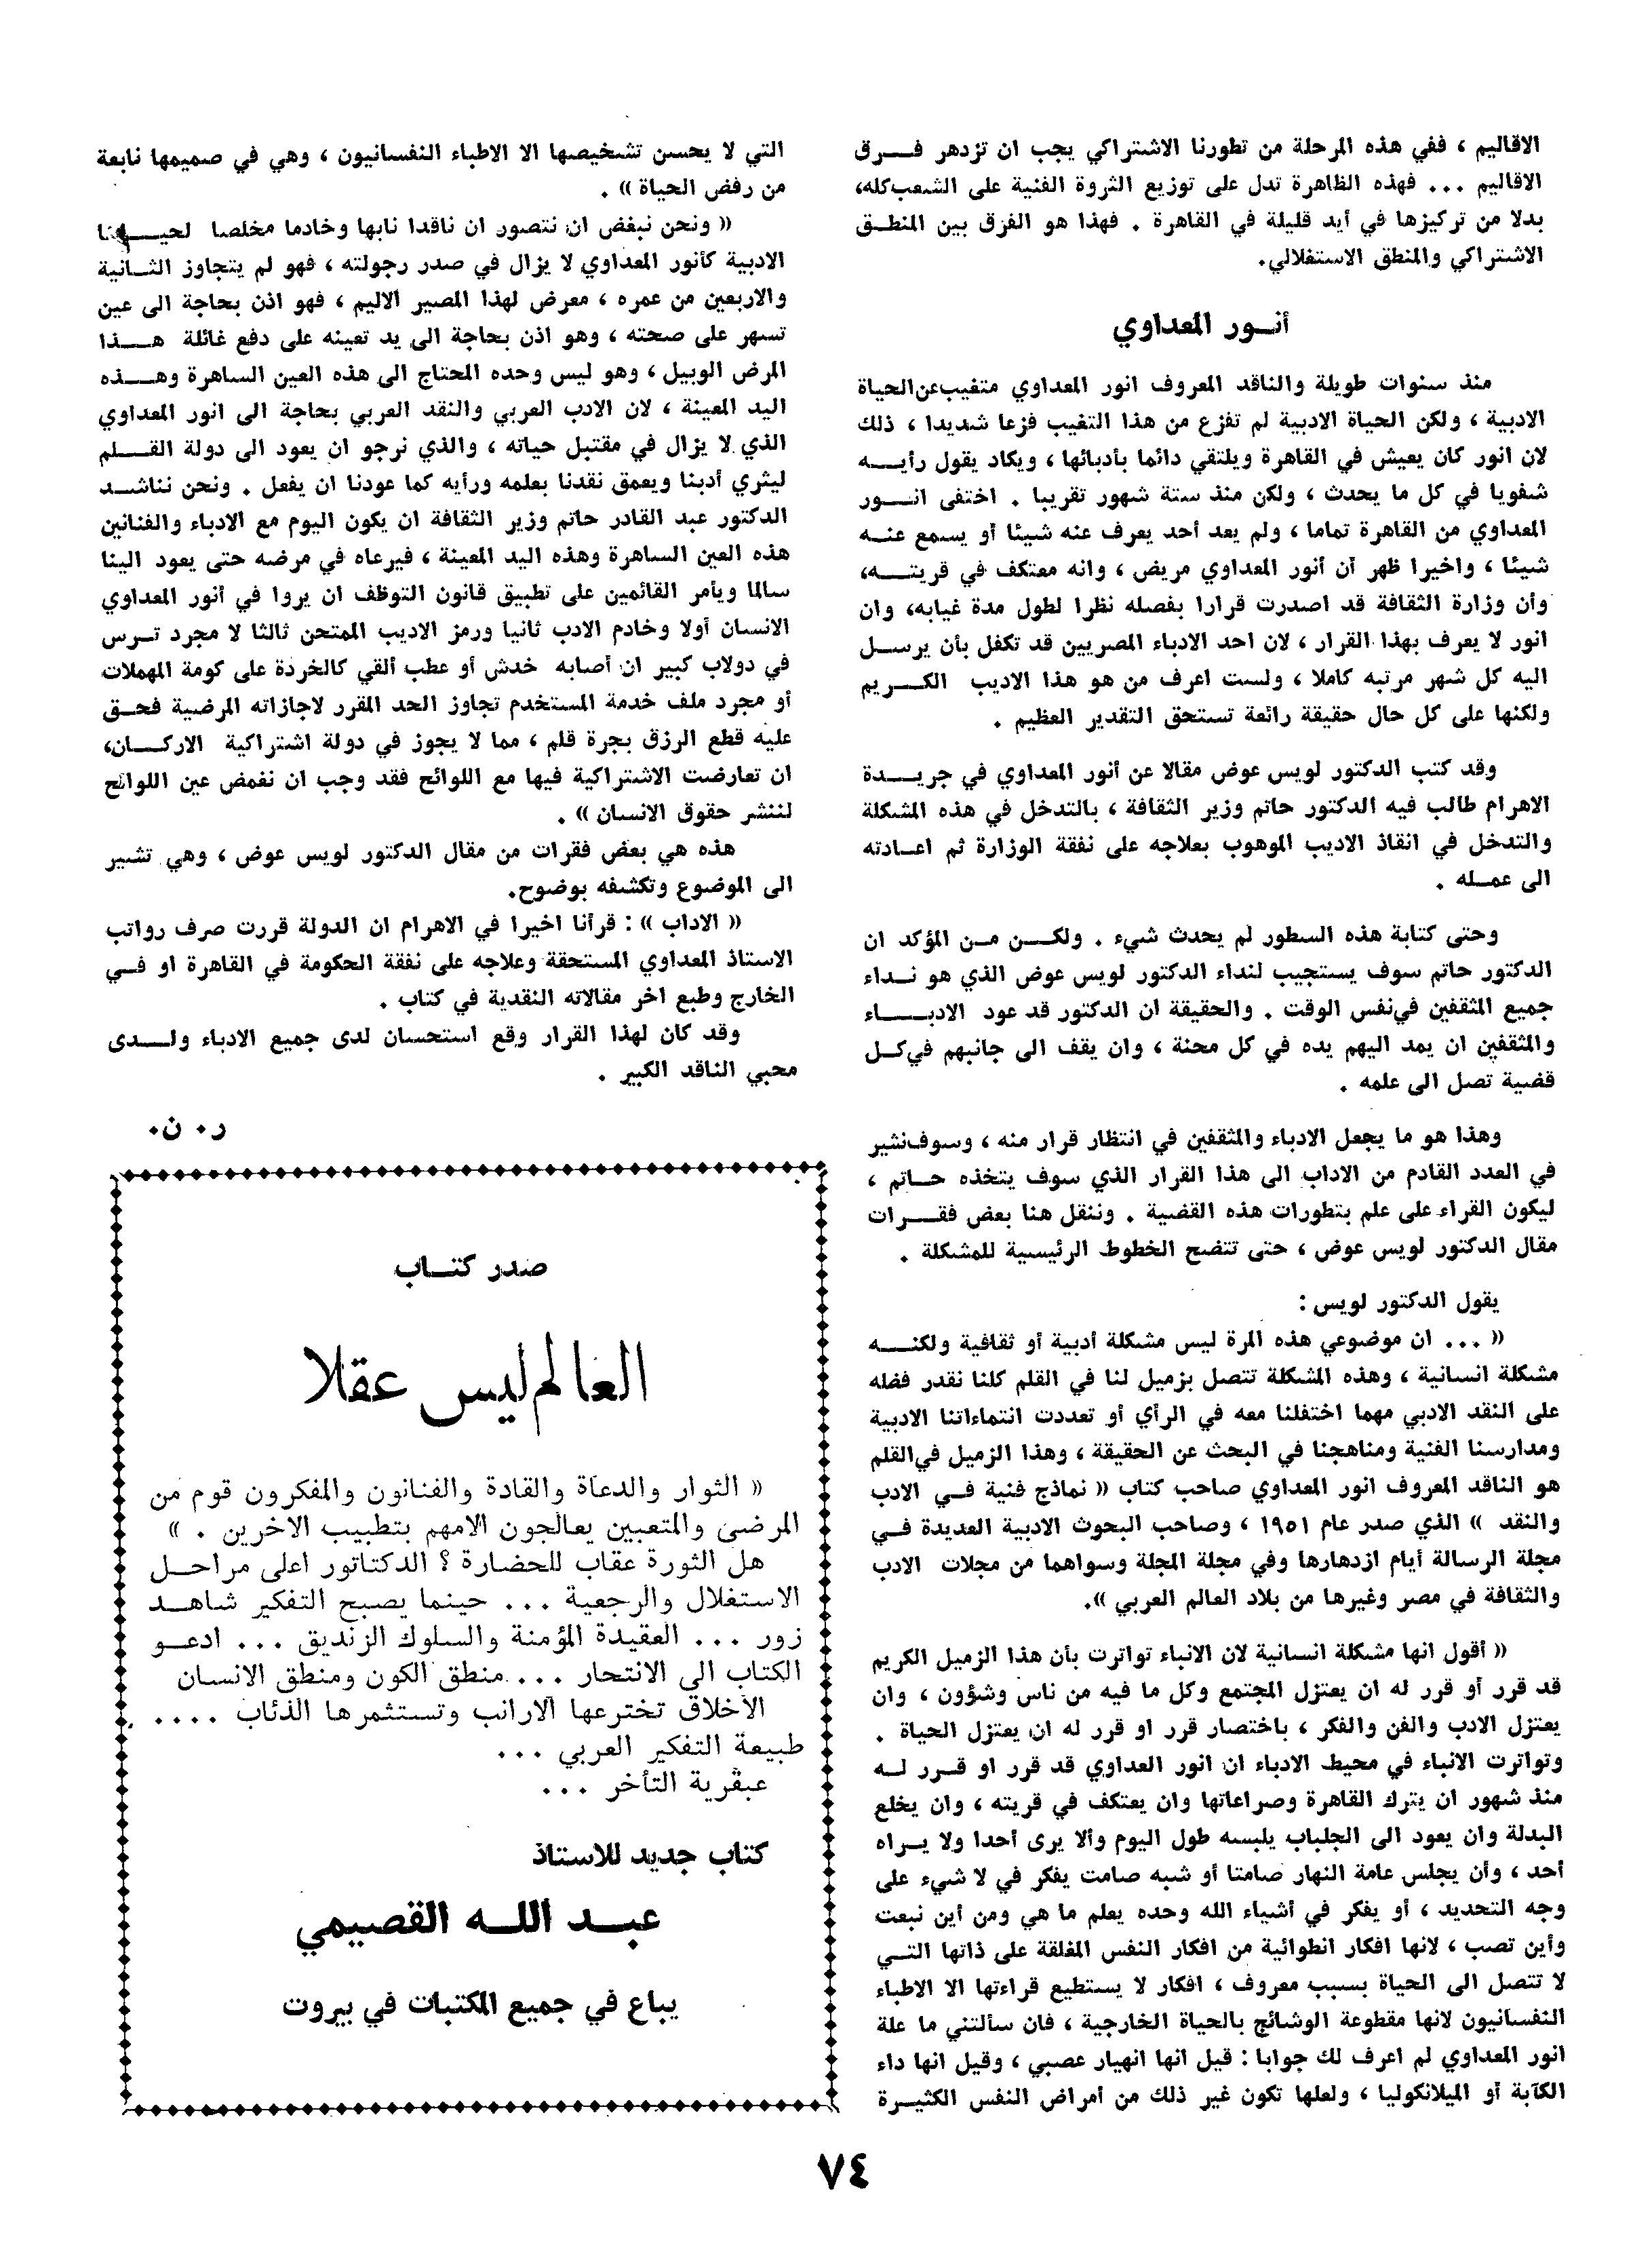 الاقاليم ، ففي هذه المرحلة من تطورنا الاشتراكي يجب ان تزدهر فـــرق
الاقاليم ... فهذه الظاهرة تدل على توزيع الثروة الفنية على الشعب كله،
بدلا من تركيزها في أيد قليلة في القاهرة . فهذا هو الفرق بين المنطــق
الاشتراكي والمنطق الاستغلالي.
أنــور المعداوي
منذ سنوات طويلة والناقد المعروف انور المعداوي متغيب عن الحياة
الادبية ، ولكن الحياة الادبية لم تفزع من هذا التغيب فزعا شديدا ، ذلك
لان انور كان يعيش في القاهرة ويلتقي دائما بأدبائها ، ويكاد يقول رأيـــه
شفويا في كل ما يحدث ، ولكن منذ ستة شهور تقريبا . اختفى انـــور
المعداوي من القاهرة تماما ، ولم يعد أحد يعرف عنه شيئا أو يسمع عنــه
شيئا ، واخيرا ظهر أن أنور المعداوي مريض ، وانه معتكف في قريتـــه،
وأن وزارة الثقافة قد اصدرت قرارا بفصله نظرا لطول مدة غيابه، وان
انور لا يعرف بهذا القرار ، لان احد الادباء المصريين قد تكفل بأن يرســل
اليه كل شهر مرتبه كاملا ، ولست اعرف من هو هذا الاديب الكـــريم
ولكنها على كل حال حقيقة رائعة تستحق التقدير العظيم .
وقد كتب الدكتور لويس عوض مقالا عن أنور المعداوي في جريـــدة
الاهرام طالب فيه الدكتور حاتم وزير الثقافة ، بالتدخل في هذه المشكلة
والتدخل في انقاذ الاديب الموهوب بعلاجه على نفقة الوزارة ثم اعــادته
الى عمــله .
وحتى كتابة هذه السطور لم يحدث شيء . ولكـــن مــن المؤكد ان
الدكتور حاتم سوف يستجيب لنداء الدكتور لويس عوض الذي هو نــداء
جميع المثقفين في نفس الوقت . والحقيقة ان الدكتور قد عود الادبـــاء
والمثقفين ان يمد اليهم يده في كل محنة ، وان يقف الى جانبهم في كــل
قضية تصل الى علمه .
وهذا هو ما يجعل الادباء والمثقفين في انتظار قرار منه ، وسوف نشير
في العدد القادم من الاداب الى هذا القرار الذي سوف يتخذه حــاتم ،
ليكون القراء على علم بتطورات هذه القضية . وننقل هنا بعض فقــرات
مقال الدكتور لويس عوض ، حتى تتضح الخطوط الرئيسية للمشكلة .
يقول الدكتور لويس :
« ... ان موضوعي هذه المرة ليس مشكلة أدبية أو ثقافية ولكنـــه
مشكلة انسانية ، وهذه المشكلة تتصل بزميل لنا في القلم كلنا نقدر فضله
على النقد الادبي مهما اختفلنا معه في الرأي أو تعددت انتماءاتنا الادبية
ومدارسنا الفنية ومناهجنا في البحث عن الحقيقة ، وهذا الزميل في القلم
هو الناقد المعروف انور المعداوي صاحب كتاب « نماذج فنية فــي الادب
والنقد » الذي صدر عام ١٩٥١ ، وصاحب البحوث الادبية العديدة فــي
مجلة الرسالة أيام ازدهارها وفي مجلة المجلة وسواهما من مجلات الادب
والثقافة في مصر وغيرها من بلاد العالم العربي ».
« أقول انها مشكلة انسانية لان الانباء تواترت بأن هذا الزميل الكريم
قد قرر أو قرر له ان يعتزل المجتمع وكل ما فيه من ناس وشؤون ، وان
يعتزل الادب والفن والفكر ، باختصار قرر او قرر له ان يعتزل الحياة .
وتواترت الانباء في محيط الادباء ان انور العداوي قد قرر او قــرر لــه
منذ شهور ان يترك القاهرة وصراعاتها وان يعتكف في قريته ، وان يخلع
البدلة وان يعود الى الجلباب يلبسه طول اليوم وألا يرى أحدا ولا يــراه
أحد ، وأن يجلس عامة النهار صامتا أو شبه صامت يفكر في لا شيء على
وجه التحديد ، أو يفكر في أشياء الله وحده يعلم ما هي ومن أين نبعت
وأين تصب ، لانها افكار انطوائية من افكار النفس المغلقة على ذاتها التــي
لا تتصل الى الحياة بسبب معروف ، افكار لا يستطيع قراءتها الا الاطباء
النفسانيون لانها مقطوعة الوشائج بالحياة الخارجية ، فان سألتني ما علة
انور المعداوي لم اعرف لك جوابا : قيل انها انهيار عصبي ، وقيل انها داء
الكآبة أو الميلانكوليا ، ولعلها تكون غير ذلك من أمراض النفس الكثيــرة
التي لا يحسن تشخيصها الا الاطباء النفسانيون ، وهي في صميمها نابعة
من رفض الحياة » .
« ونحن نبغض ان نتصور ان ناقدا نابها وخادما مخلصا لحيـــاتنا
الادبية كأنور المعداوي لا يزال في صدر رجولته ، فهو لم يتجاوز الثــانية
والاربعين من عمره ، معرض لهذا المصير الاليم ، فهو اذن بحاجة الى عين
تسهر على صحته ، وهو اذن بحاجة الى يد تعينه على دفع غائلة هـــذا
المرض الوبيل ، وهو ليس وحده المحتاج الى هذه العين الساهرة وهـــذه
اليد المعينة ، لان الادب العربي والنقد العربي بحاجة الى انور المعداوي
الذي لا يزال في مقتبل حياته ، والذي نرجو ان يعود الى دولة القـــلم
ليثري أدبنا ويعمق نقدنا بعلمه ورأيه كما عودنا ان يفعل . ونحن نناشــد
الدكتور عبد القادر حاتم وزير الثقافة ان يكون اليوم مع الادباء والفنانين
هذه العين الساهرة وهذه اليد المعينة ، فيرعاه في مرضه حتى يعود الينا
سالما ويأمر القائمين على تطبيق قانون التوظف ان يروا في أنور المعداوي
الانسان أولا وخادم الادب ثانيا ورمز الاديب الممتحن ثالثا لا مجرد تــرس
في دولاب كبير ان أصابه خدش أو عطب ألقي كالخردة على كومة المهملات
أو مجرد ملف خدمة المستخدم تجاوز الحد المقرر لاجازاته المرضية فحــق
عليه قطع الرزق بجرة قلم ، مما لا يجوز في دولة اشتراكية الاركـــان،
ان تعارضت الاشتراكية فيها مع اللوائح فقد وجب ان نغمض عين اللوائح
لننشر حقوق الانسان » .
هذه هي بعض فقرات من مقال الدكتور لويس عوض ، وهي تشير
الى الموضوع وتكشفه بوضوح.
« الاداب » : قرأنا اخيرا في الاهرام ان الدولة قررت صرف رواتب
الاستاذ المعداوي المستحقة وعلاجه على نفقة الحكومة في القاهرة او فــي
الخارج وطبع اخر مقالاته النقدية في كتاب .
وقد كان لهذا القرار وقع استحسان لدى جميع الادباء ولـــدى
محبي الناقد الكبير .
ر. ن.
صدر كتــاب
العالم ليس عقلا
« الثوار والدعاة والقادة والفنانون والمفكرون قوم من
المرضى والمتعبين يعالجون الامهم بتطبيب الاخرين . »
هل الثورة عقاب للحضارة ؟ الدكتاتور اعلى مراحــل
الاستغلال والرجعية ... حينما يصبح التفكير شاهــد
زور ... العقيدة المؤمنة والسلوك الزنديق ... ادعــو
الكتاب الى الانتحار ... منطق الكون ومنطق الانسان
الاخلاق تخترعها الارانب وتستثمرها الذئاب ....
طبيعة التفكير العربي ...
عبقرية التأخر ...
كتاب جديد للاستاذ
عبــد اللــه القصيمي
يباع في جميع المكتبات في بيروت
٧٤